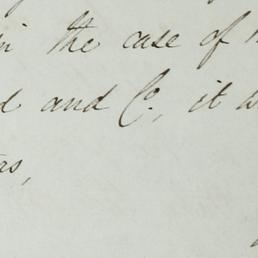 in the case of
d and Co, it